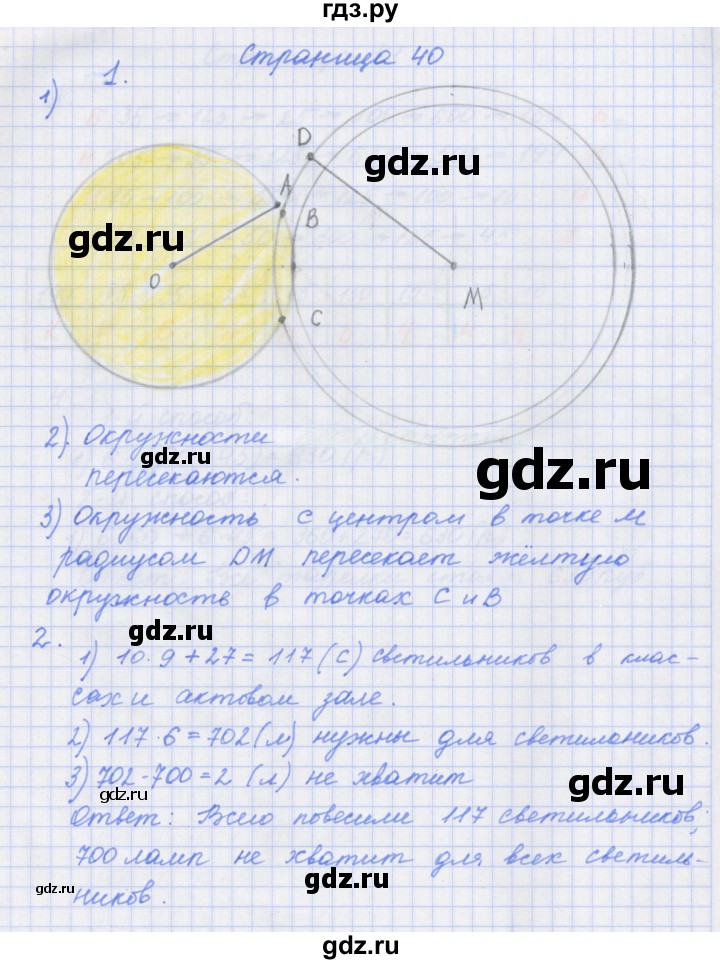 гдз.ру
Страница 40
1.
1)
D
gdz.ru
A
gdz.ru
B
O
M
C
2) Окружности
gdz.ru
gdz.ru
пересекаются.
3) Окружность с центром в точке М
радиусом DM пересекает жёлтую
окружность в точках С и В
gdz.ru
2.
1) 10·9+27=117(с) светильников в клас-
сах и актовом зале.
2) 117·6=702(л) нужны для светилоников.
3) 702-700=2 (л) не хватит
gdz.ru
gdz.ru
Ответ: Всего повесили 117 светильников;
700 ламп не хватит для всех светиль-
gdz.ru
gdz.ru
ников.
gdz.ru